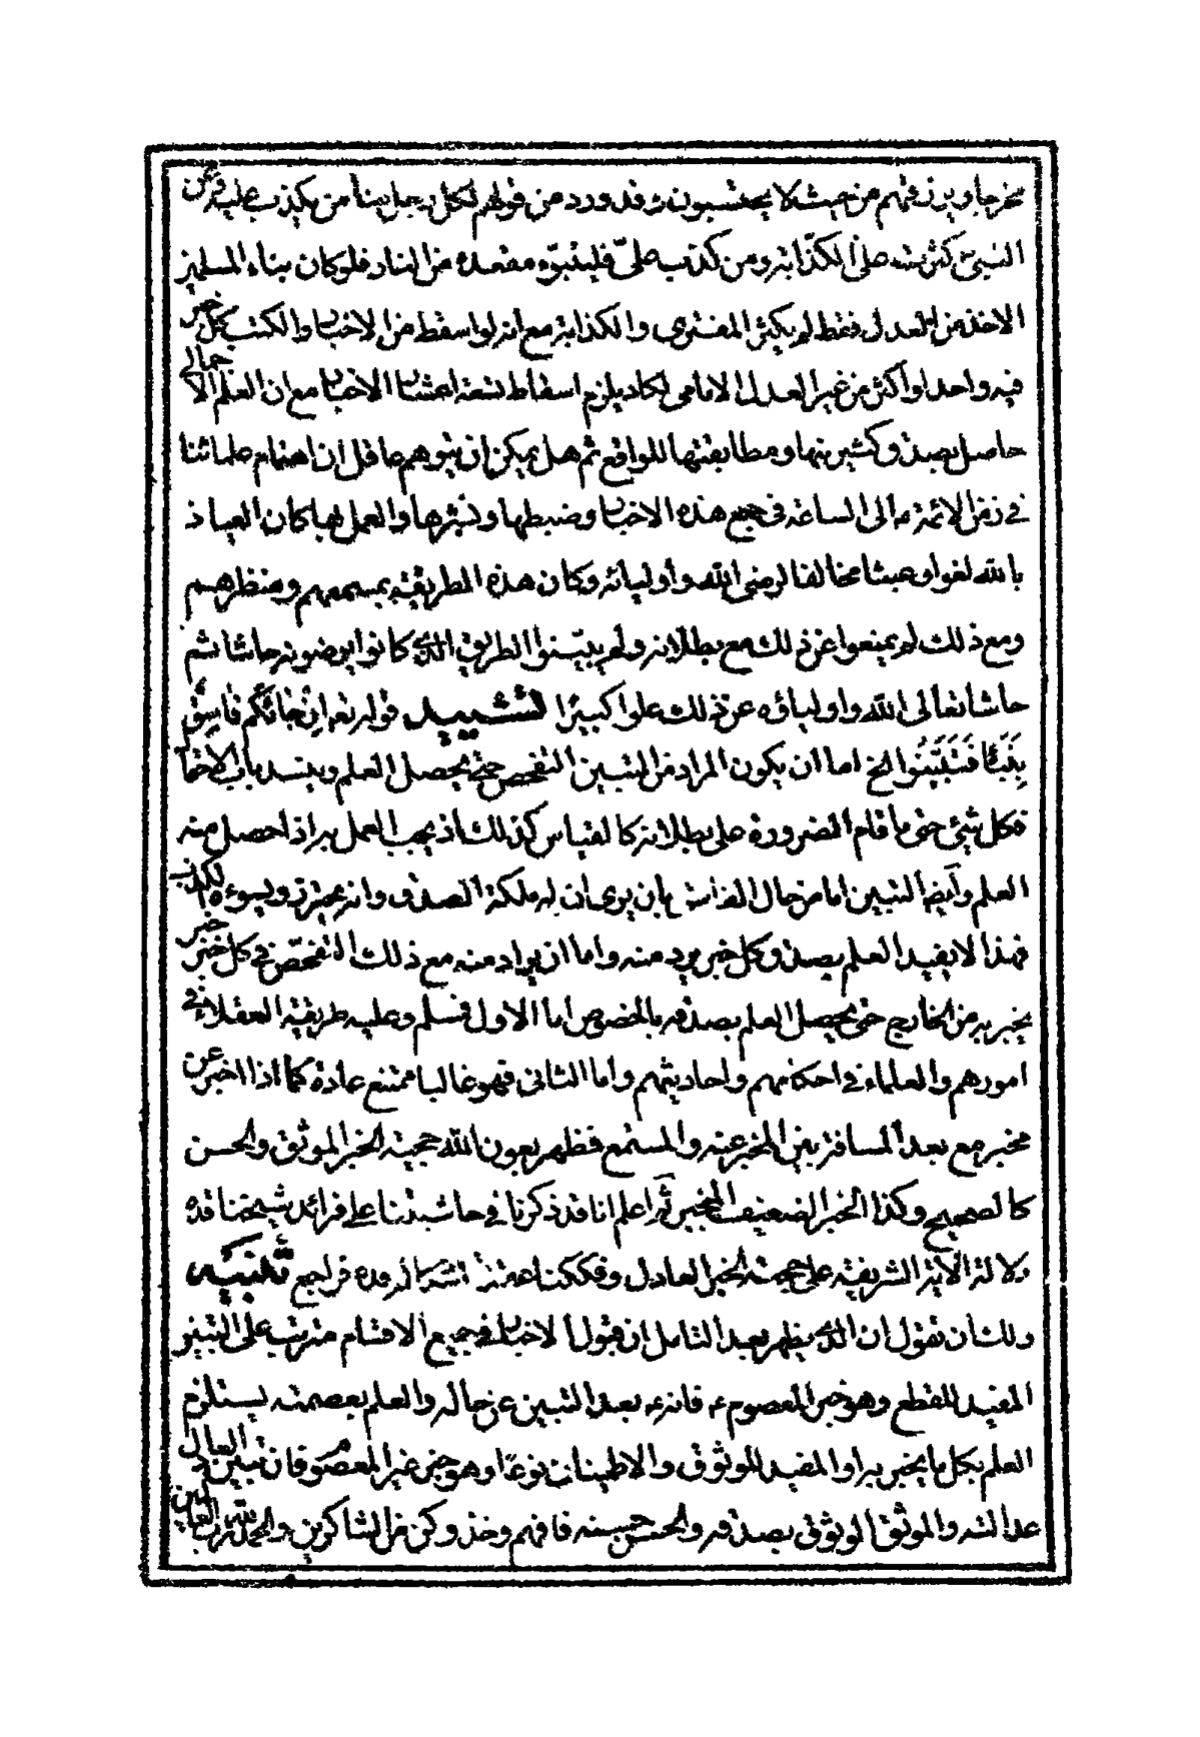 مخرجا ويرزقهم من حيث لا يحتسبون وقد ورد من قولهم لكل رجل منا من يكذب عليه وعن
النبي ص كثرت على الكذابة ومن كذب على فليتبوء مقعده من النار فلو كان بناء المسلمين
الاخذ من العدل فقط لم يكثر المفترى والكذابة مع انه لو اسقط من الاخبار والكتب كل خبر
فيه واحد او أكثر من غير العدل الامامى لكاد يلزم اسقاط تسعة اعشار الاخبار مع ان العلم الاجمالي
حاصل بصدق كثير منها ومطابقتها للواقع ثم هل يمكن ان يتوهم عاقل ان اهتمام علمائنا
في زمن الائمة ع الى الساعة في جمع هذه الاخبار وضبطها ونشرها والعمل بها كان العياذ
بالله لغوا وعبثا مخالفا لرضى الله واوليائه وكان هذه الطريقة بمسمعهم ومنظرهم
ومع ذلك لم يمنعوا عن ذلك مع بطلانه ولم يبيّنوا الطريق الذي كانوا يرضونه حاشا ثم
حاشا تعالى الله واولياؤه عن ذلك علوا كبيرا تشييد قوله تعالى ان جائكم فاسِقٌ
بِنَبَأ فَتَبَيَّنُوا الخ اما ان يكون المراد من التبين التفحص حتى يحصل العلم وينسد باب الاحتما
فكل شيئ حتى ما قام الضرورة على بطلانه كالقياس كذلك اذ يجب العمل به اذا حصل منه
العلم وأيضا التبين اما من حال الفاسق بان يرى ان له ملكة الصدق وانه يحترز ويسوءه الكذب
فهذا لا يفيد العلم بصدق كل خبر يرد منه واما ان يراد منه مع ذلك التفحّص في كل خبر خبر
يخبر به من الخارج حتى يحصل العلم بصدقه بالخصوص اما الاول فمسلم وعليه طريقة العقلاء في
امورهم والعلماء في احكامهم واحاديثهم واما الثانى فهو غالبا ممتنع عادة كما اذا اخبر عن
مخبر مع بعد المسافة بين المخبر عنه والمستمع فظهر بعون الله حجية الخبر الموثق والحسن
كالصحيح وكذا الخبر الضعيف المنجبر ثم اعلم انا قد ذكرنا في حاشيتنا على فرائد شيخنا قده
دلالة الآية الشريفة على حجية الخبر العادل وفككنا فراجع تنبيه
ولك ان تقول ان الذي يظهر بعد التامل ان قبول الاخبار في جميع الاقسام مترتب على التبين
المفيد للقطع وهو خبر المعصوم ع فانه ع بعد التبين عن حاله والعلم بعصمته يستلزم
العلم بكل ما يخبر به او المفيد للوثوق والاطمينان نوعا وهو خبر غير المعصوم فان تبين العادل
عدالته والموثق الوثوق بصدقه والحسن حسنه فافهم وخذ وكن من الشاكرين والحمد لله رب العالمين